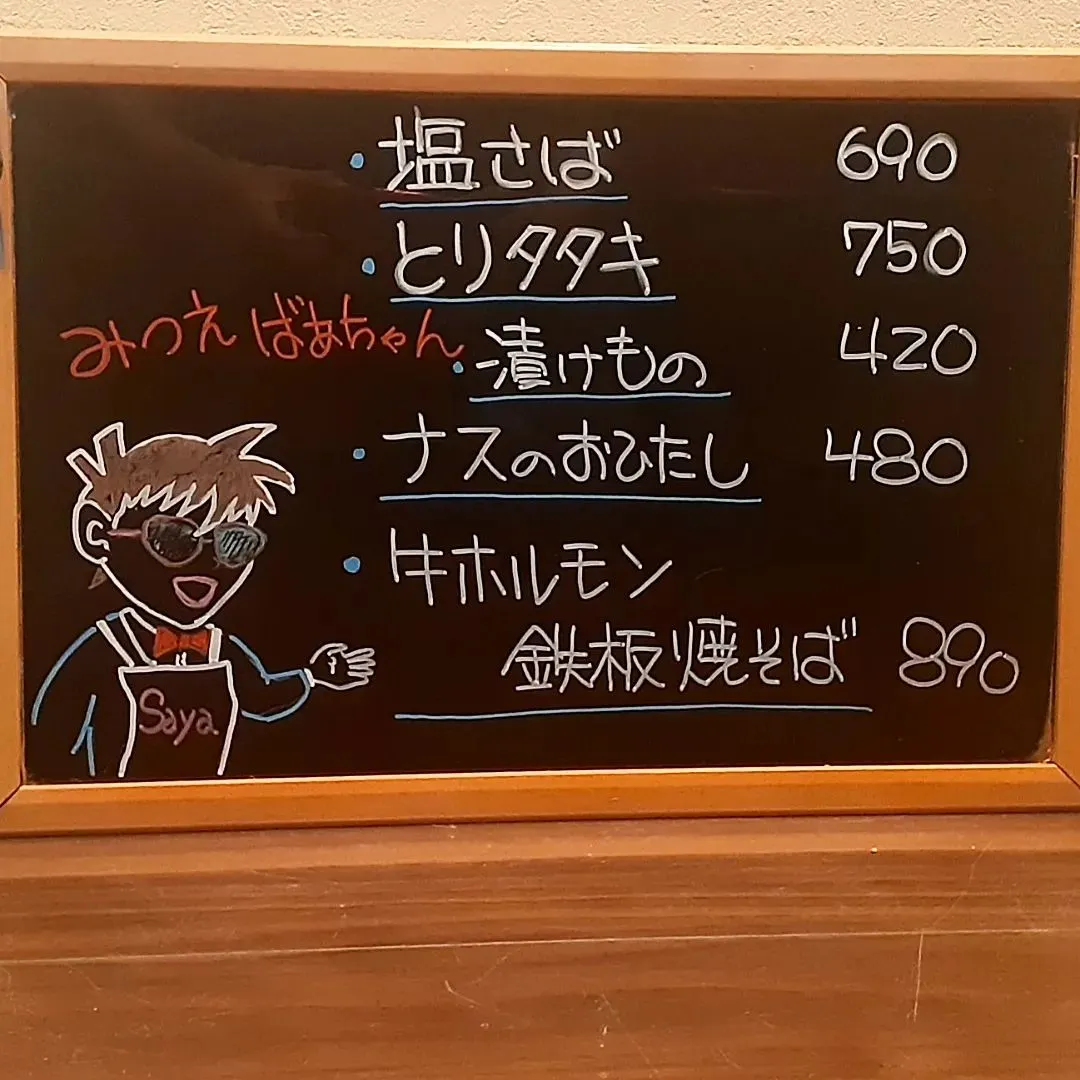 ・塩さば 690
・とりタタキ 750
みつえ ばあちゃん
・漬けもの 420
・ナスのおひたし 480
・牛ホルモン
鉄板焼そば 890
Saya